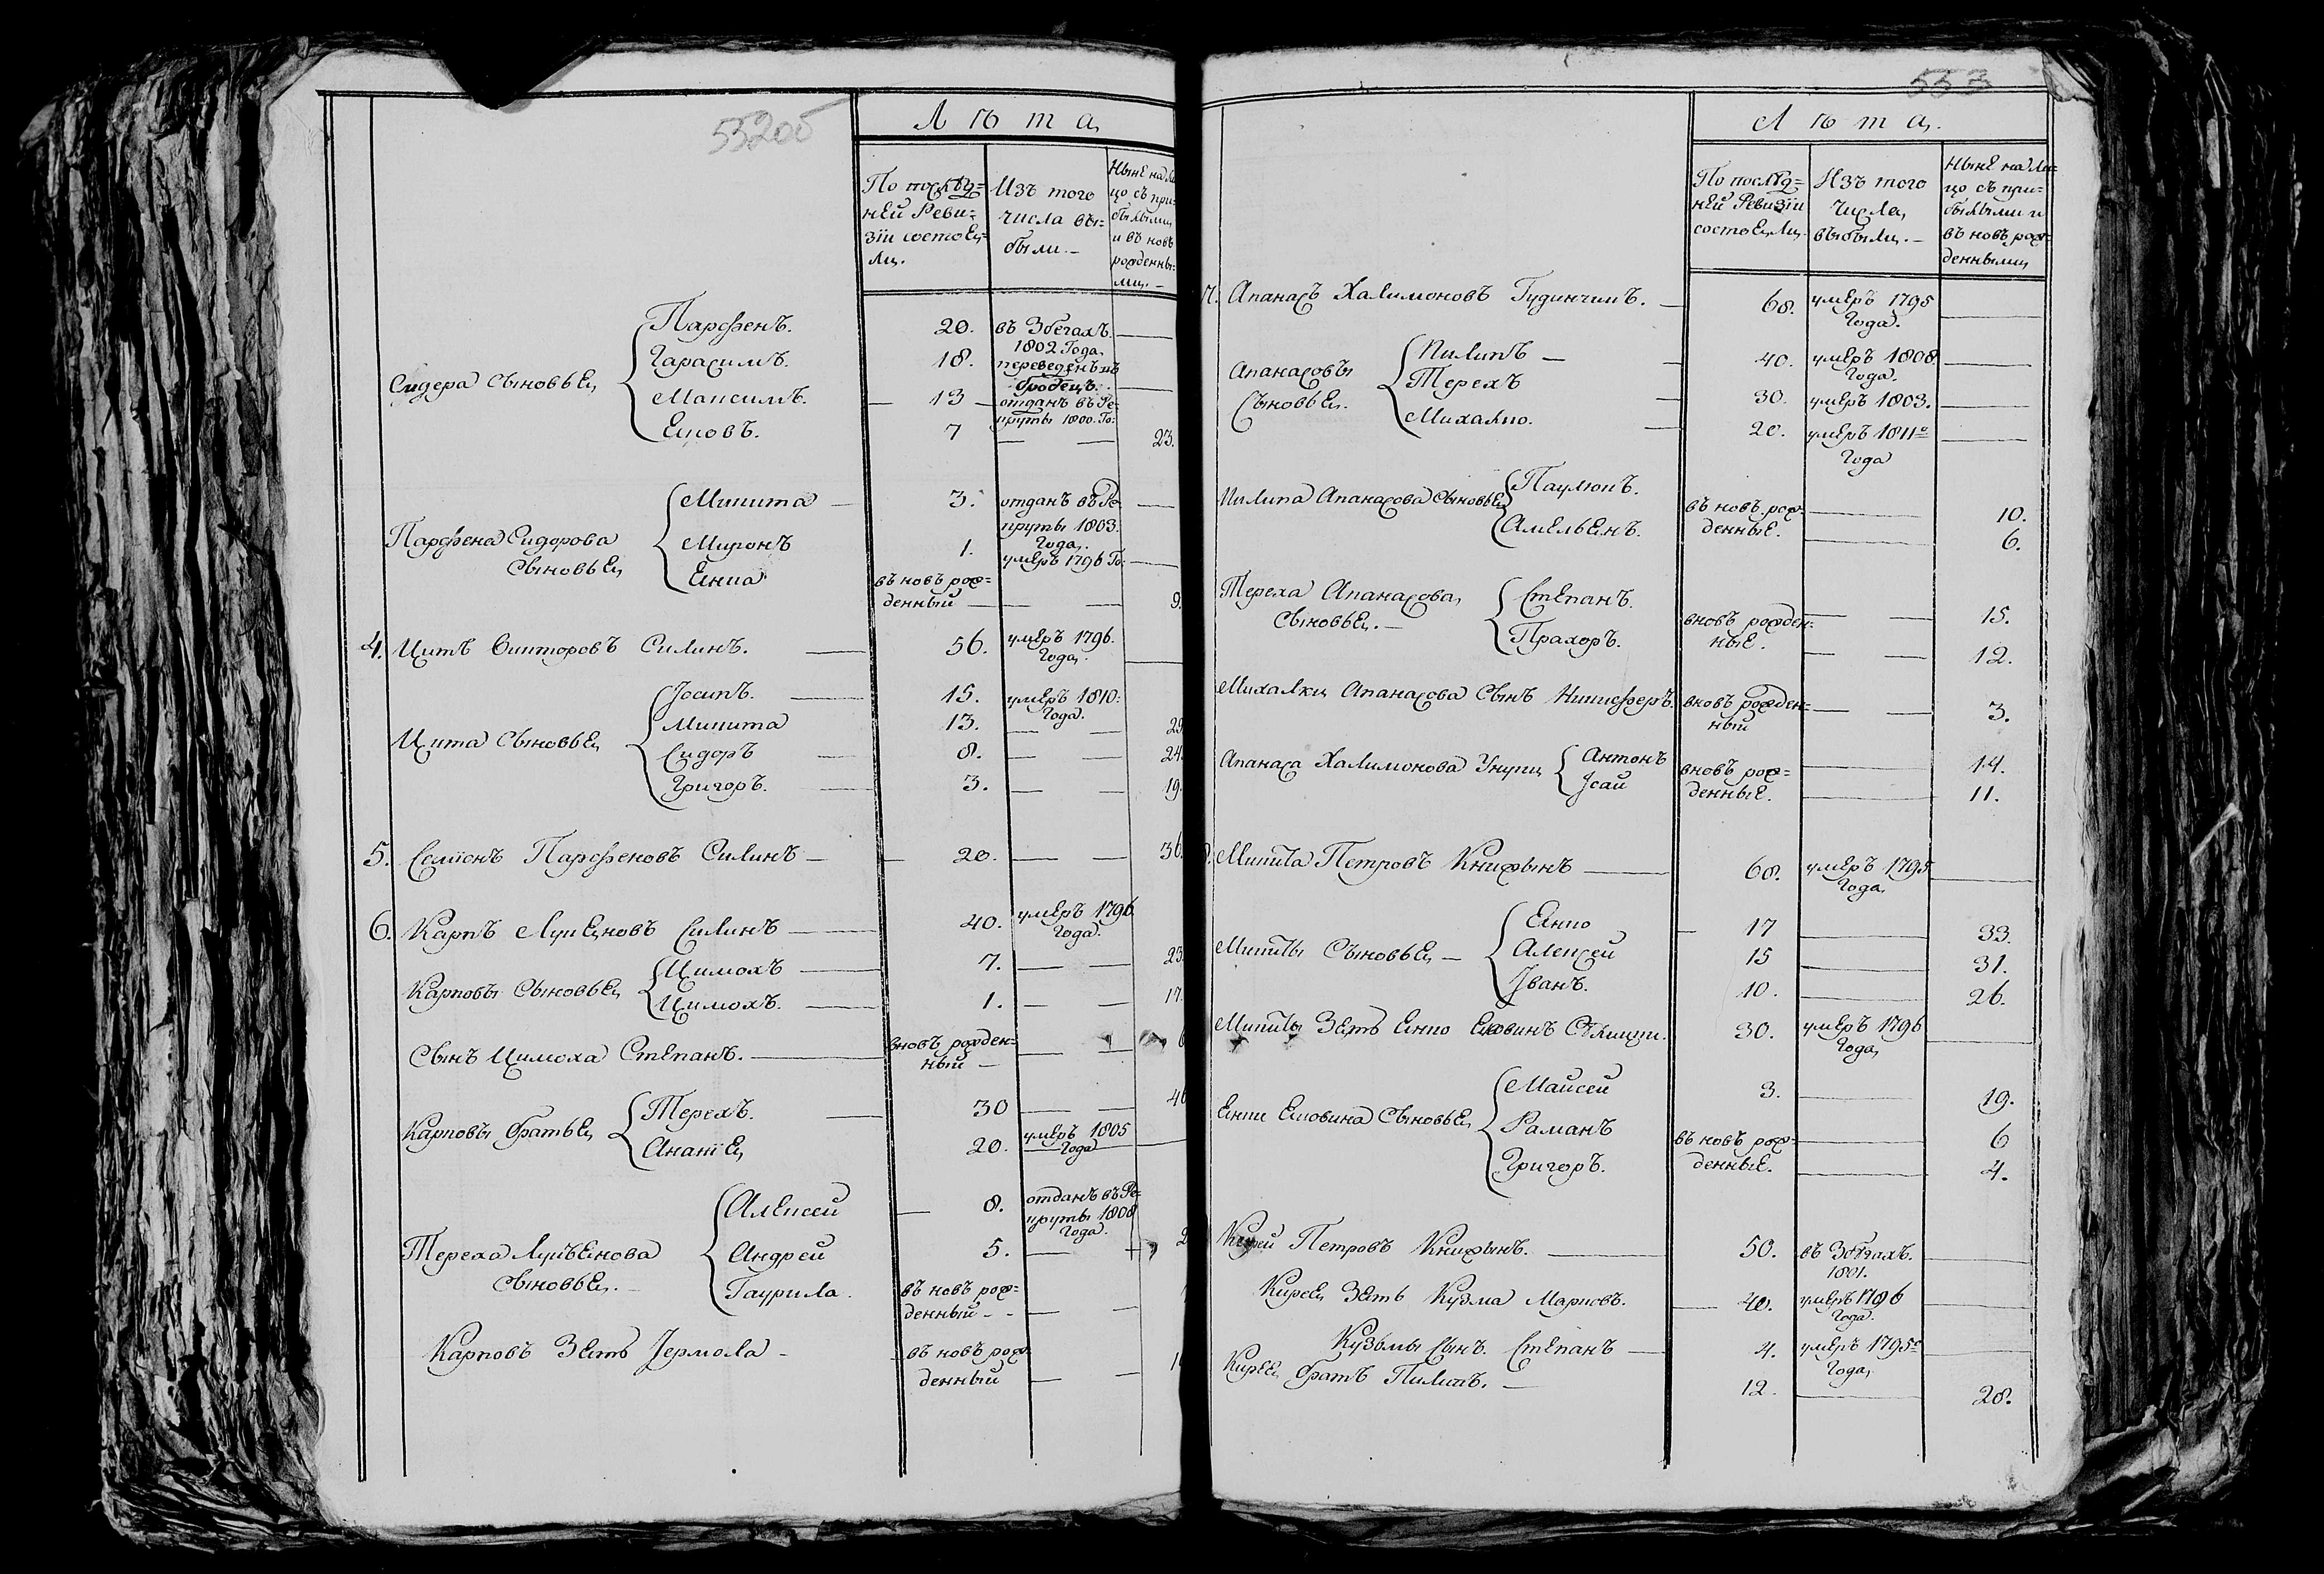 552об
Лѣта
По послѣд=
ней Реви=
зіи состоя=
ли.
Изъ того
числа вы=
были.-
Ныне на ли
цо съ при=
былыми
и въ новъ
рожденны=
ми.-
Сидера сыновья
Парфенъ. 20. въ Збегахъ.
1802 Года.
Гарасимъ. 18. переведенъ въ
бродецъ.
Максимъ. 13 отданъ въ Ре=
круты 1800. Го:
Яковъ. 7 23.
Парфена Сидорова
сыновья
Микита 3. отданъ въ Ре
круты 1803.
Года.
Миронъ 1. умеръ 1796 Го:
Янка въ новъ рож=
денный 9.
4. Цитъ Виктаровъ Силинъ. 56. умеръ 1796.
Года.
Цита сыновья
Іосипъ. 15. умеръ 1810.
Года.
Микита 13. 29
Сидоръ 8. 24
Григоръ. 3. 19
5. Семіонъ Парфеновъ Силинъ 20. 36.
6. Карпъ Лукяновъ Силинъ 40. умеръ 1796
Года.
Карповы сыновья
Цимохъ 7. 23
Цимохъ. 1. 17.
Сынъ Цимоха Степанъ. вновъ рожден=
ный 6
Карповы братья
Терехъ. 30 46
Ананія 20. умеръ 1805
Года
Тереха Лукъянова
сыновья.
Алексей 8. отданъ въ Ре=
круты 1808
Года.
Андрей 5. 2
Гаурила. въ новъ рож=
денный
Карповъ Зять Јермола въ новъ рож
денный
553
Лѣта.
По послѣд=
ней Ревизіи
состояли.
Изъ того
числа
выбыли.-
Ныне на ли=
цо съ при=
былыми и
въ новъ рож=
денными
7. Апанасъ Халимоновъ Гудинчикъ. 68. умеръ 1795
Года.
Апанасовы
Сыновья.
Пилипъ 40. умеръ 1808.
Года.
Терехъ 30. умеръ 1803.
Михалко. 20. умеръ 1811го
Года
Пилипа Апанасова сыновья
Паулюкъ. въ новъ рож
денные. 10.
Амельянъ. 6.
Тереха Апанасова
сыновья.
Степанъ. вновъ рожден=
ные. 15.
Прахоръ. 12.
Михалки Апанасова Сынъ Никиферъ. вновъ рожден=
ный 3.
Апанаса Халимонова Унуки
Антонъ вновъ рож=
денные. 14.
Јсай 11.
Микита Петровъ Книжынъ 68. умеръ 1795
Года.
Микиты Сыновья
Янко 17 33.
Алексей 15 31.
Јванъ. 10. 26.
Микиты Зять Янко Яковинъ 30. умеръ 1796
Года
Янки Яковина Сыновья
Майсей 3. 19.
Раманъ въ новъ рож=
денные. 6
Григоръ. 4.
Кирей Петровъ Книжынъ. 50. въ Збѣгахъ.
1801.
Кирея Зять Кузма Марковъ. 40. умеръ 1796
Года.
Кузьмы сынъ. Степанъ 4. умеръ 1795го
Года
Кирея братъ Пилипъ. 12. 28.